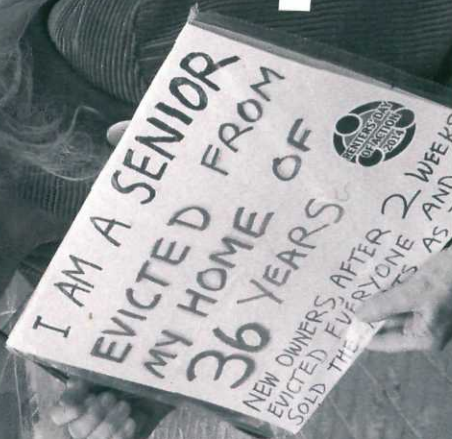 I AM A SENIOR
EVICTED FROM
MY HOME OF
36 YEARS
RENTERS' DAY
OF ACTION
2014
NEW OWNERS AFTER 2 WEEKS
EVICTED EVERYONE AND
SOLD THE AS